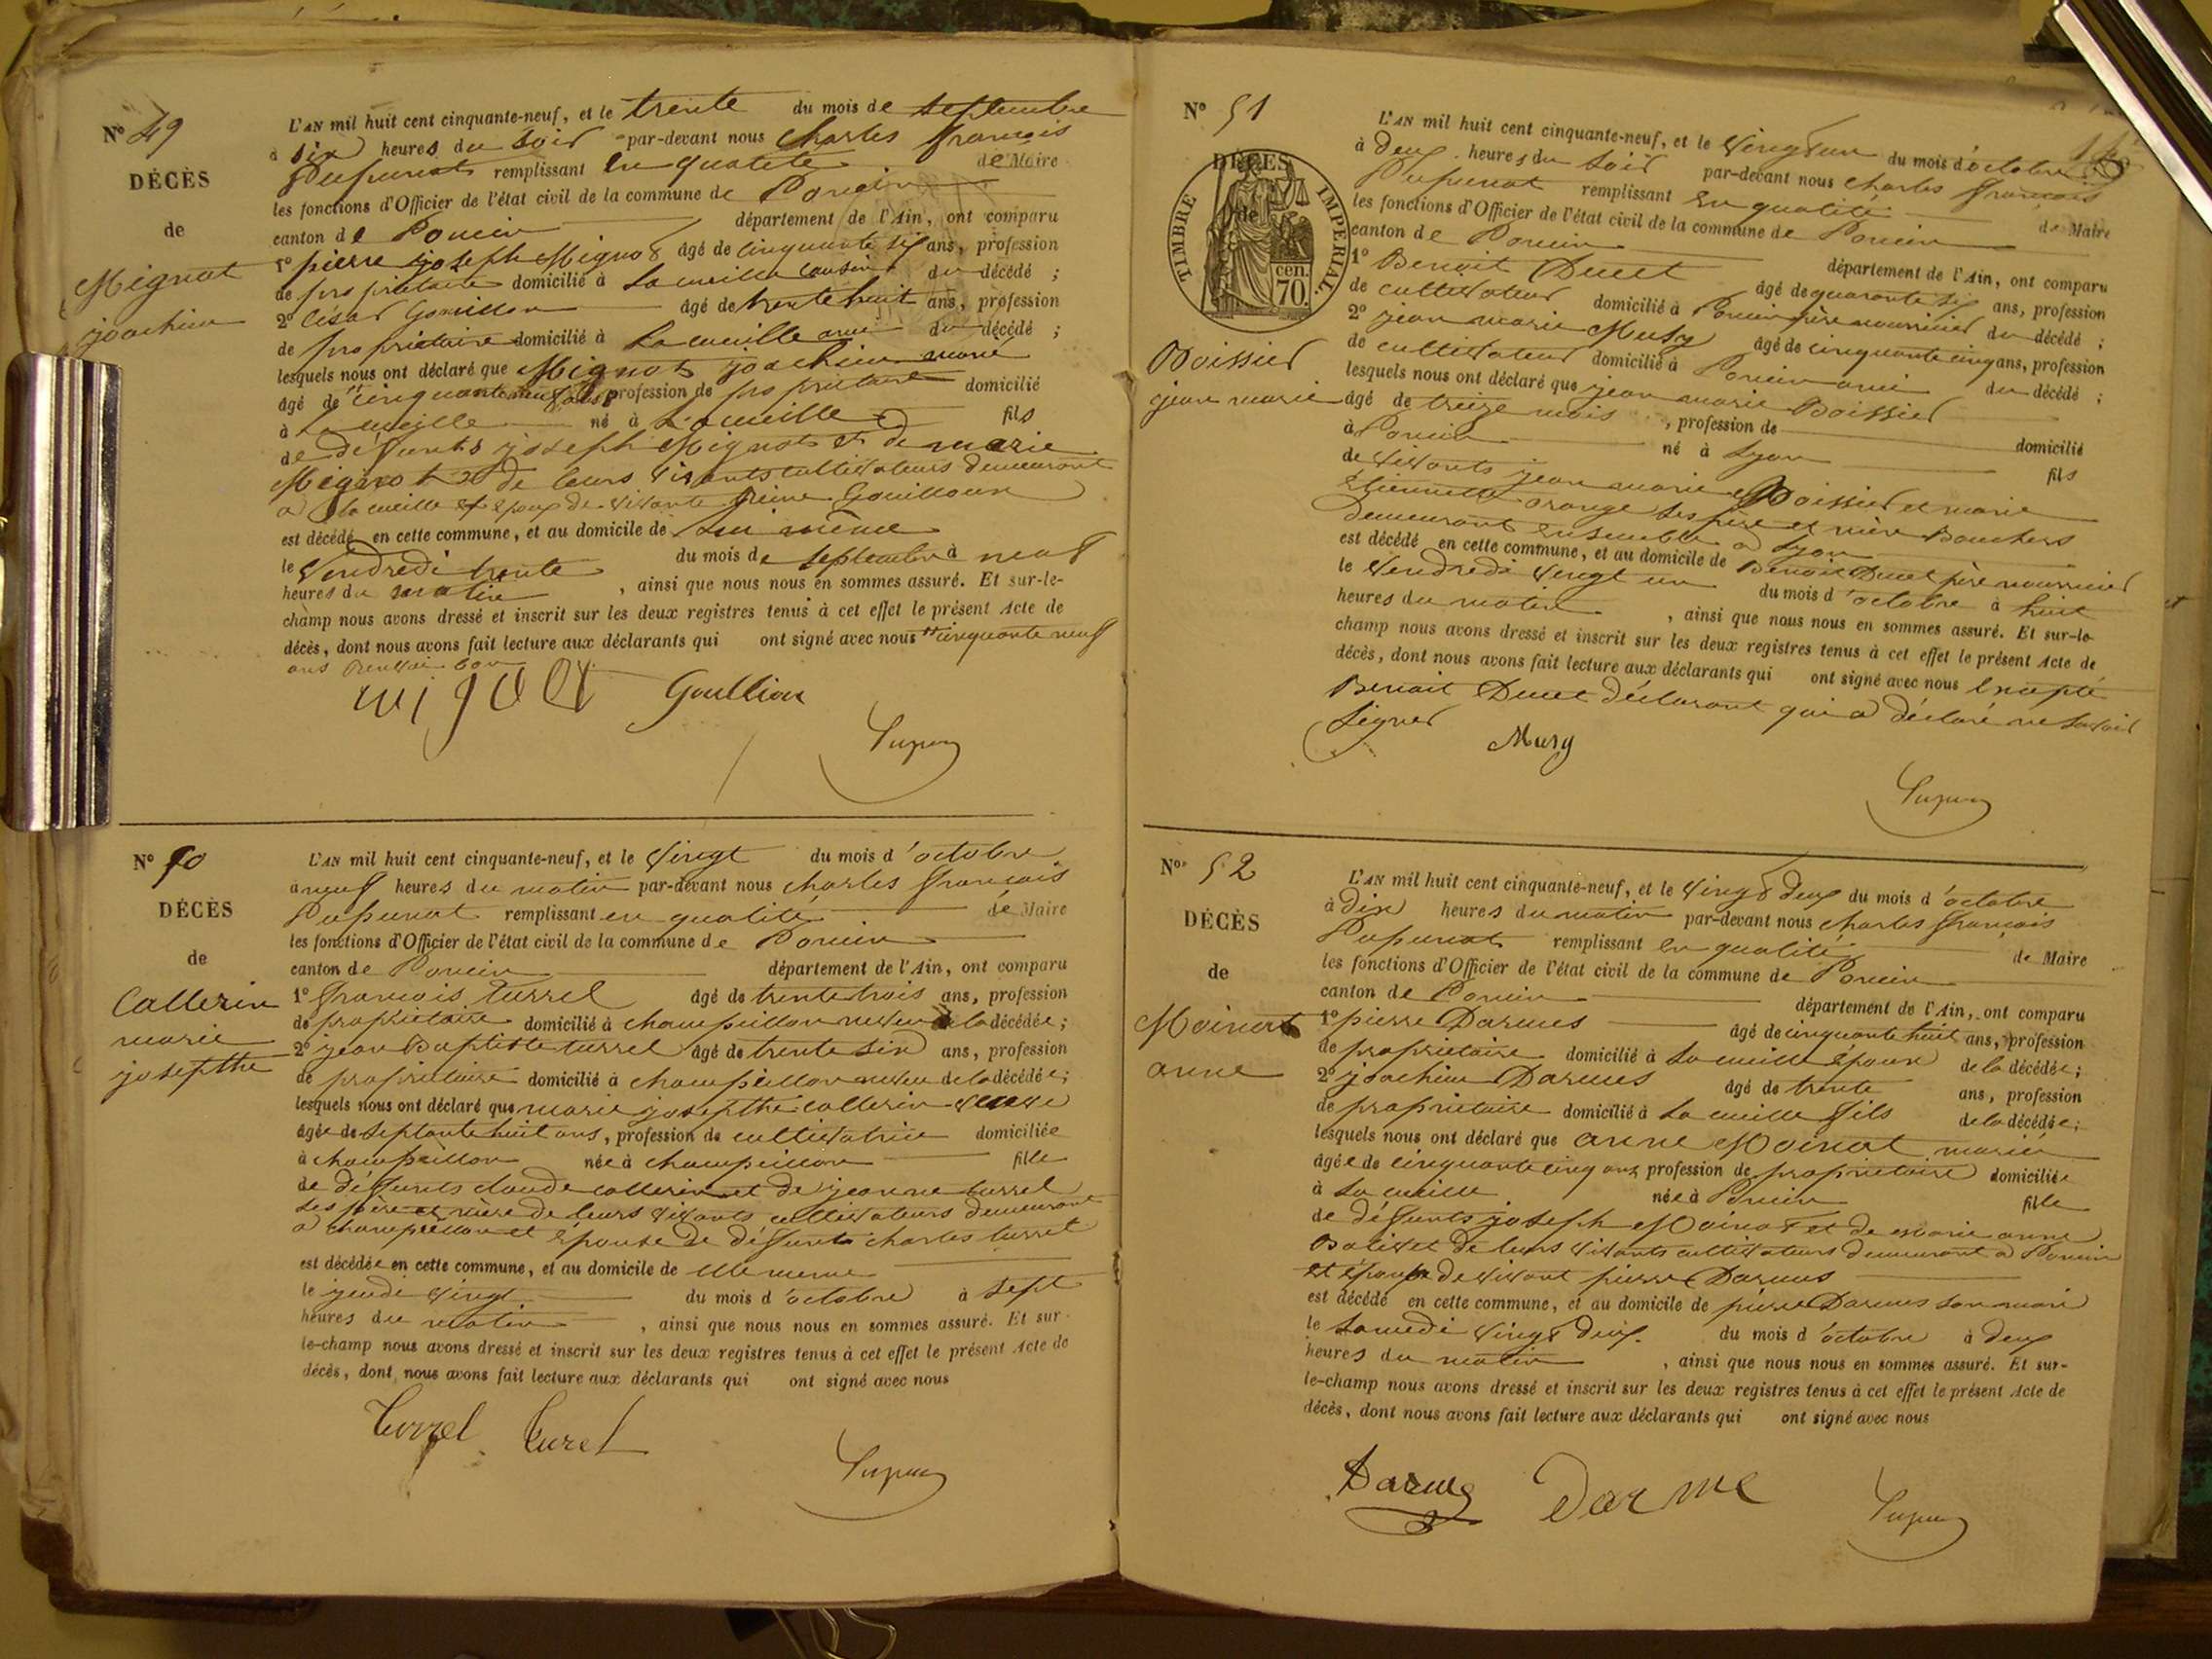 N° 49
DÉCÈS
de
Mignot
joachim
L'AN mil huit cent cinquante-neuf, et le trente du mois de septembre
à six heures du soir par-devant nous Charles françois
Pupunat remplissant en qualité de Maire
les fonctions d'Officier de l'état civil de la commune de Poncin
canton de Poncin département de l'Ain, ont comparu
1° pierre joseph Mignot âgé de cinquante six ans, profession
de propriétaire domicilié à La cueille cousin du décédé ;
2° César Gouillon âgé de trente huit ans, profession
de propriétaire domicilié à La cueille ami du décédé ;
lesquels nous ont déclaré que Mignot joachim marié
âgé de cinquante neuf ans profession de propriétaire domicilié
à La cueille né à La cueille fils
de défunts joseph Mignot et de marie
Mignot de leurs vivants cultivateurs demeurant
a la cueille et époux de vivante Reine Gouilloux
est décédé en cette commune, et au domicile de lui même
le vendredi trente du mois de septembre à neuf
heures du matin , ainsi que nous nous en sommes assuré. Et sur-le-
champ nous avons dressé et inscrit sur les deux registres tenus à cet effet le présent Acte de
décès, dont nous avons fait lecture aux déclarants qui ont signé avec nous cinquante neuf
ans Renvoi bon
mignot Goullion
N° 50
DÉCÈS
de
Collerin
marie
josepthe
L'AN mil huit cent cinquante-neuf, et le vingt du mois d'octobre
à neuf heures du matin par-devant nous charles françois
Pupunat remplissant en qualité de Maire
les fonctions d'Officier de l'état civil de la commune de Poncin
canton de Poncin département de l'Ain, ont comparu
1° françois turrel âgé de trente trois ans, profession
de propriétaire domicilié à champeillon neveu de la décédée ;
2° jean Baptiste turrel âgé de trente six ans, profession
de propriétaire domicilié à champeillon neveu de la décédée ;
lesquels nous ont déclaré que marie josepthe collerin veuve
âgée de septante huit ans, profession de cultivatrice domiciliée
à champeillon née à champeillon fille
de défunts claude collerin et de jeanne turrel
ses père et mère de leurs vivants cultivateurs demeurant
a champeillon et épouse de défunt charles turrel
est décédée en cette commune, et au domicile de elle meme
le jeudi vingt du mois d'octobre à sept
heures du matin , ainsi que nous nous en sommes assuré. Et sur-
le-champ nous avons dressé et inscrit sur les deux registres tenus à cet effet le présent Acte de
décès, dont nous avons fait lecture aux déclarants qui ont signé avec nous
Turrel Turel
N° 51
DÉCÈS
de
TIMBRE IMPERIAL
cen.
70.
Boissier
jean marie
L'AN mil huit cent cinquante-neuf, et le vingt un du mois d'octobre
à deux heures du soir par-devant nous charles françois
Pupunat remplissant en qualité de Maire
les fonctions d'Officier de l'état civil de la commune de Poncin
canton de Poncin département de l'Ain, ont comparu
1° Benoit Ducet âgé de quarante six ans, profession
de cultivateur domicilié à Poncin père nourricier du décédé ;
2° jean marie Musy âgé de cinquante cinq ans, profession
de cultivateur domicilié à Poncin ami du décédé ;
lesquels nous ont déclaré que jean marie Boissier
âgé de treize mois , profession de domicilié
à Poncin né à Lyon fils
de vivants jean marie Boissier et marie
Etiennette orange ses père et mère Bouchers
demeurant ensemble a Lyon
est décédé en cette commune, et au domicile de Benoit Ducet père nourricier
le vendredi vingt un du mois d'octobre à huit
heures du matin , ainsi que nous nous en sommes assuré. Et sur-le-
champ nous avons dressé et inscrit sur les deux registres tenus à cet effet le présent Acte de
décès, dont nous avons fait lecture aux déclarants qui ont signé avec nous Excepté
Benoit Ducet déclarant qui a déclaré ne savoir
signer
Musy
N° 52
DÉCÈS
de
Moinat
anne
L'AN mil huit cent cinquante-neuf, et le vingt deux du mois d'octobre
à dix heures du matin par-devant nous charles françois
Pupunat remplissant en qualité de Maire
les fonctions d'Officier de l'état civil de la commune de Poncin
canton de Poncin département de l'Ain, ont comparu
1° pierre Darmes âgé de cinquante huit ans, profession
de propriétaire domicilié à La cueille époux de la décédée ;
2° joachim Darmes âgé de trente ans, profession
de propriétaire domicilié à La cueille fils de la décédée ;
lesquels nous ont déclaré que anne Moinat mariée
âgée de cinquante cinq ans profession de propriétaire domiciliée
à La cueille née à Poncin fille
de défunts joseph Moinat et de marie anne
Bolivet de leurs vivants cultivateurs demeurant a Poncin
et épouse de vivant pierre Darmes
est décédé en cette commune, et au domicile de pierre Darmes son mari
le samedi vingt deux du mois d'octobre à deux
heures du matin , ainsi que nous nous en sommes assuré. Et sur-
le-champ nous avons dressé et inscrit sur les deux registres tenus à cet effet le présent Acte de
décès, dont nous avons fait lecture aux déclarants qui ont signé avec nous
Darmes Darme